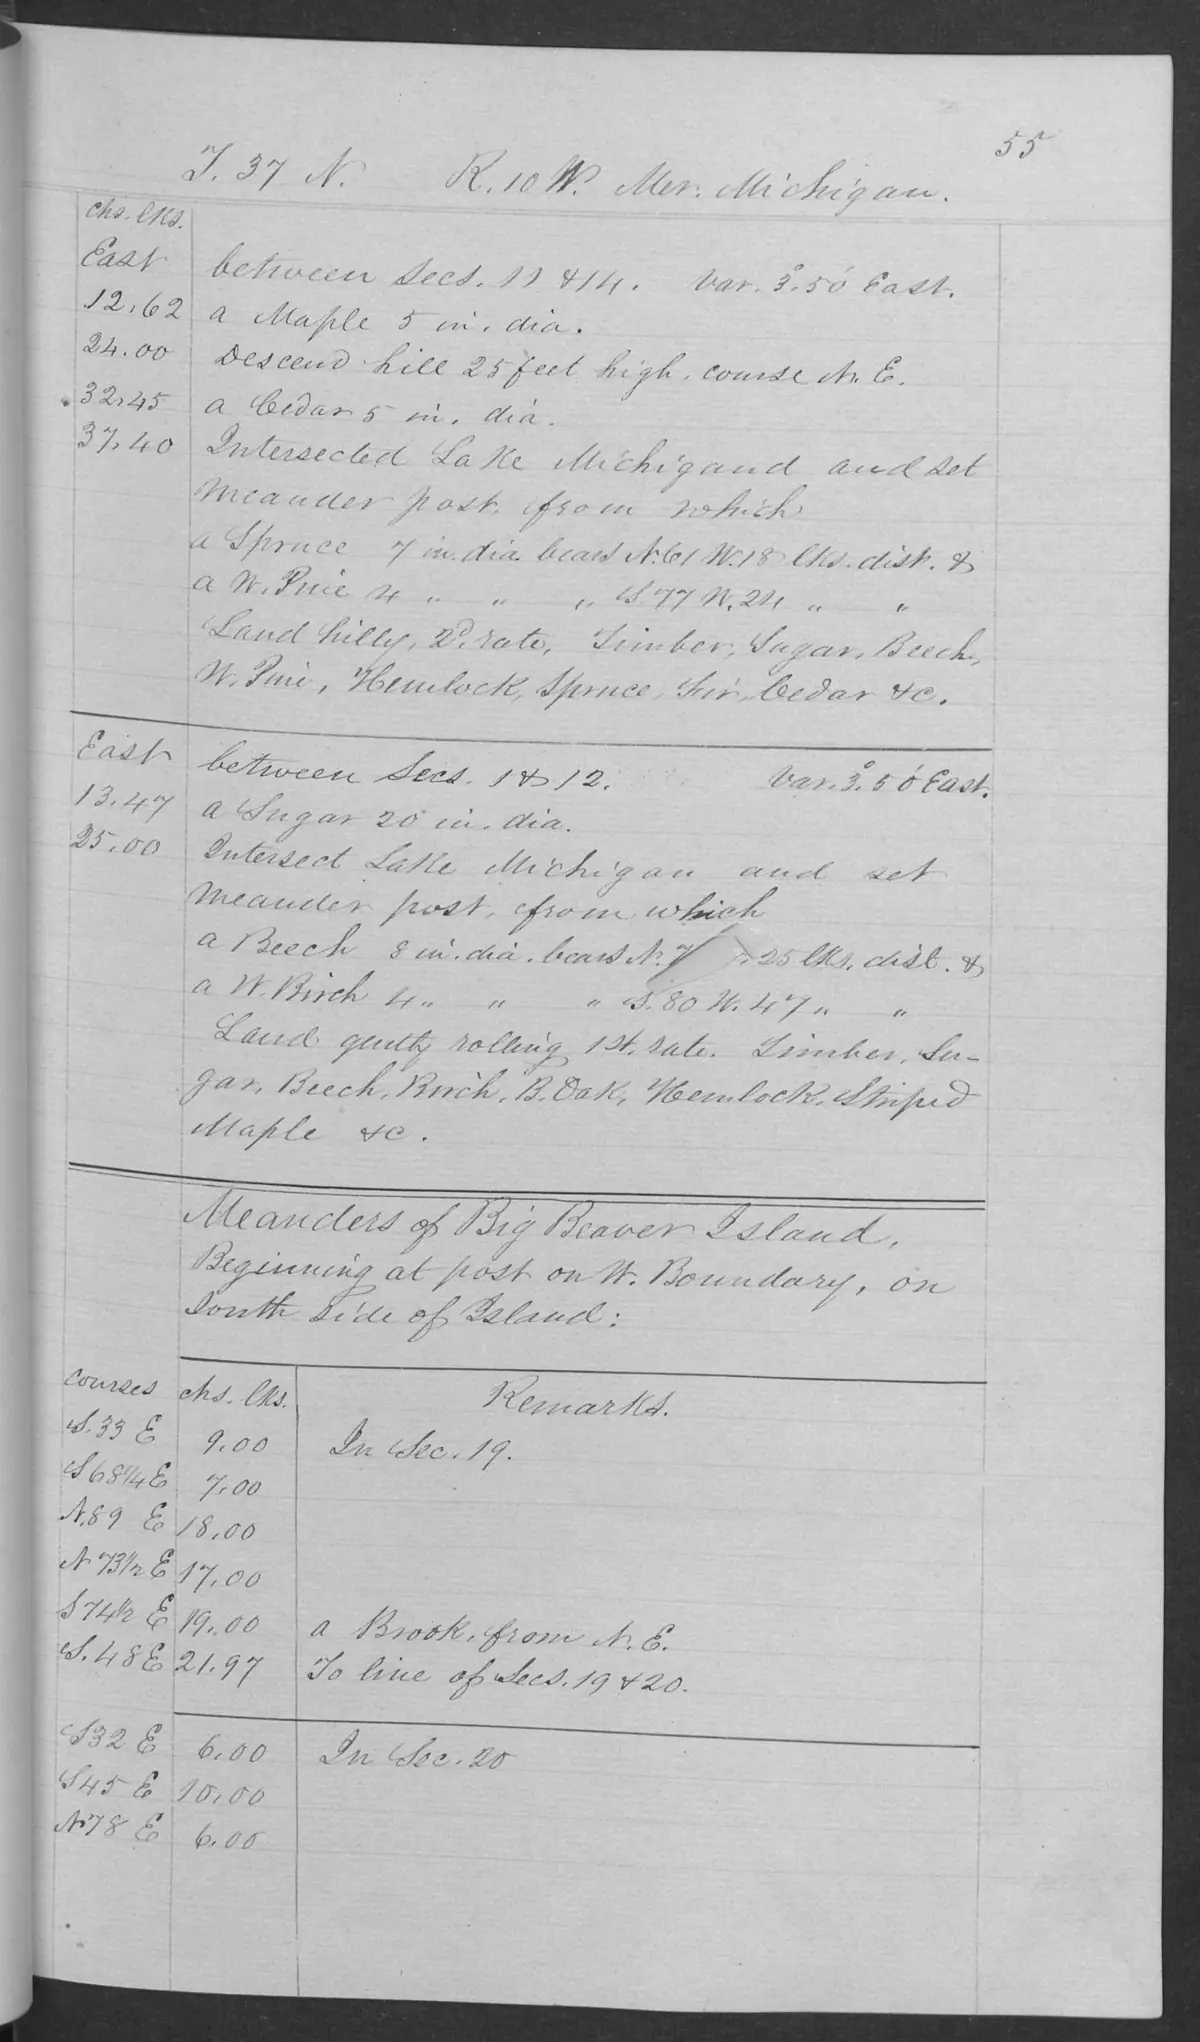 55
T. 37 N. R. 10 W. Mer. Michigan.
chs. lks.
East between Secs. 11 & 14. Var. 3° 50' East.
12.62 a Maple 5 in. dia.
24.00 Descend hill 25 feet high. course N. E.
32.45 a Cedar 5 in. dia.
37.40 Intersected Lake Michigand and set
meander post, from which
a Spruce 7 in. dia bears N. 61 W. 18 lks. dist. &
a W. Pine 4 " " " S. 77 W. 24 " "
Land hilly, 2d. rate, Timber, Sugar, Beech,
W. Pine, Hemlock, Spruce, Fir, Cedar &c.
East between Secs. 1 & 12. Var. 3° 50' East.
13.47 a Sugar 20 in. dia.
25.00 Intersect Lake Michigan and set
meander post, from which
a Beech 8 in. dia. bears N. 25 lks. dist. &
a W. Birch 4 " " " S. 80 W. 47 " "
Land gently rolling 1st. rate. Timber, Su-
gar, Beech, Birch, B. Oak, Hemlock, Striped
Maple &c.
Meanders of Big Beaver Island.
Beginning at post on W. Boundary, on
South side of Island:
courses chs. lks. Remarks.
S. 33 E 9.00 In Sec. 19.
S 68 1/4 E 7.00
N. 89 E 18.00
N 73 1/2 E 17.00
S 74 1/2 E 19.00 a Brook, from N. E.
S. 48 E 21.97 To line of Secs. 19 & 20.
S 32 E 6.00 In Sec. 20
S 45 E 10.00
N 78 E 6.00